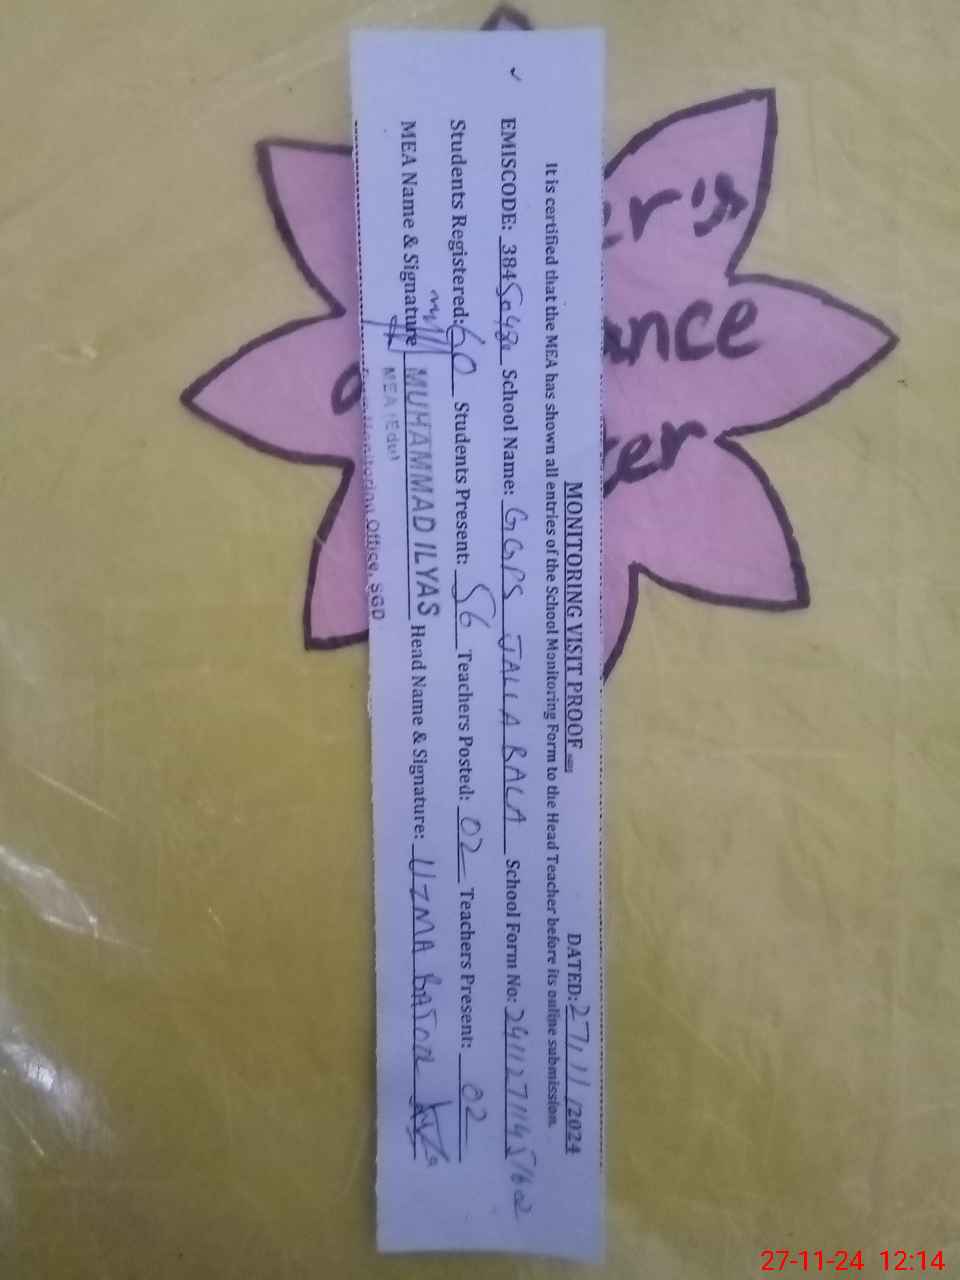 MONITORING VISIT PROOF DATED: 27/11/2024
It is certified that the MEA has shown all entries of the School Monitoring Form to the Head Teacher before its online submission.
EMISCODE: 38450481 School Name: GGPS JALLA BALA School Form No:
Students Registered: 60 Students Present: 56 Teachers Posted: 02 Teachers Present: 02
MEA Name & Signature MUHAMMAD ILYAS Head Name & Signature: UZMA BATOOL
MEA (Edu)
Monitoring Office, SGD
er's
ance
er
27-11-24 12:14